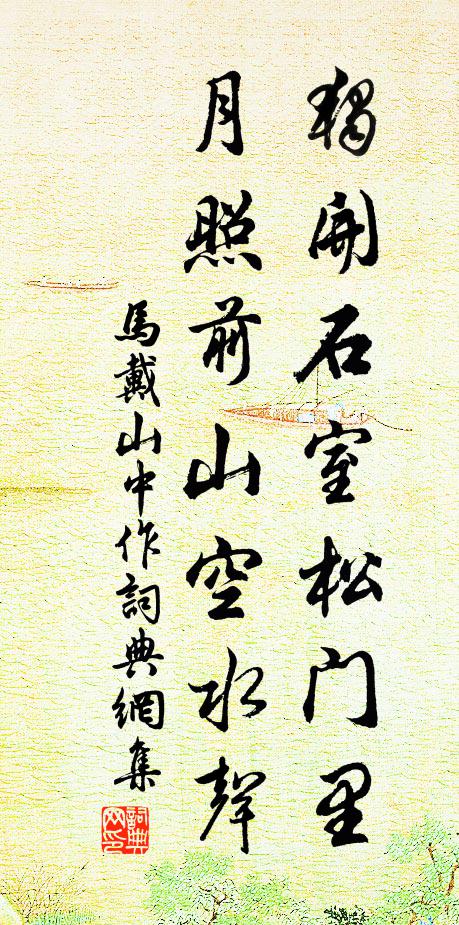 獨開石室松門里
月照前山空水聲
馬戴山中作詞典網集
詞典網印